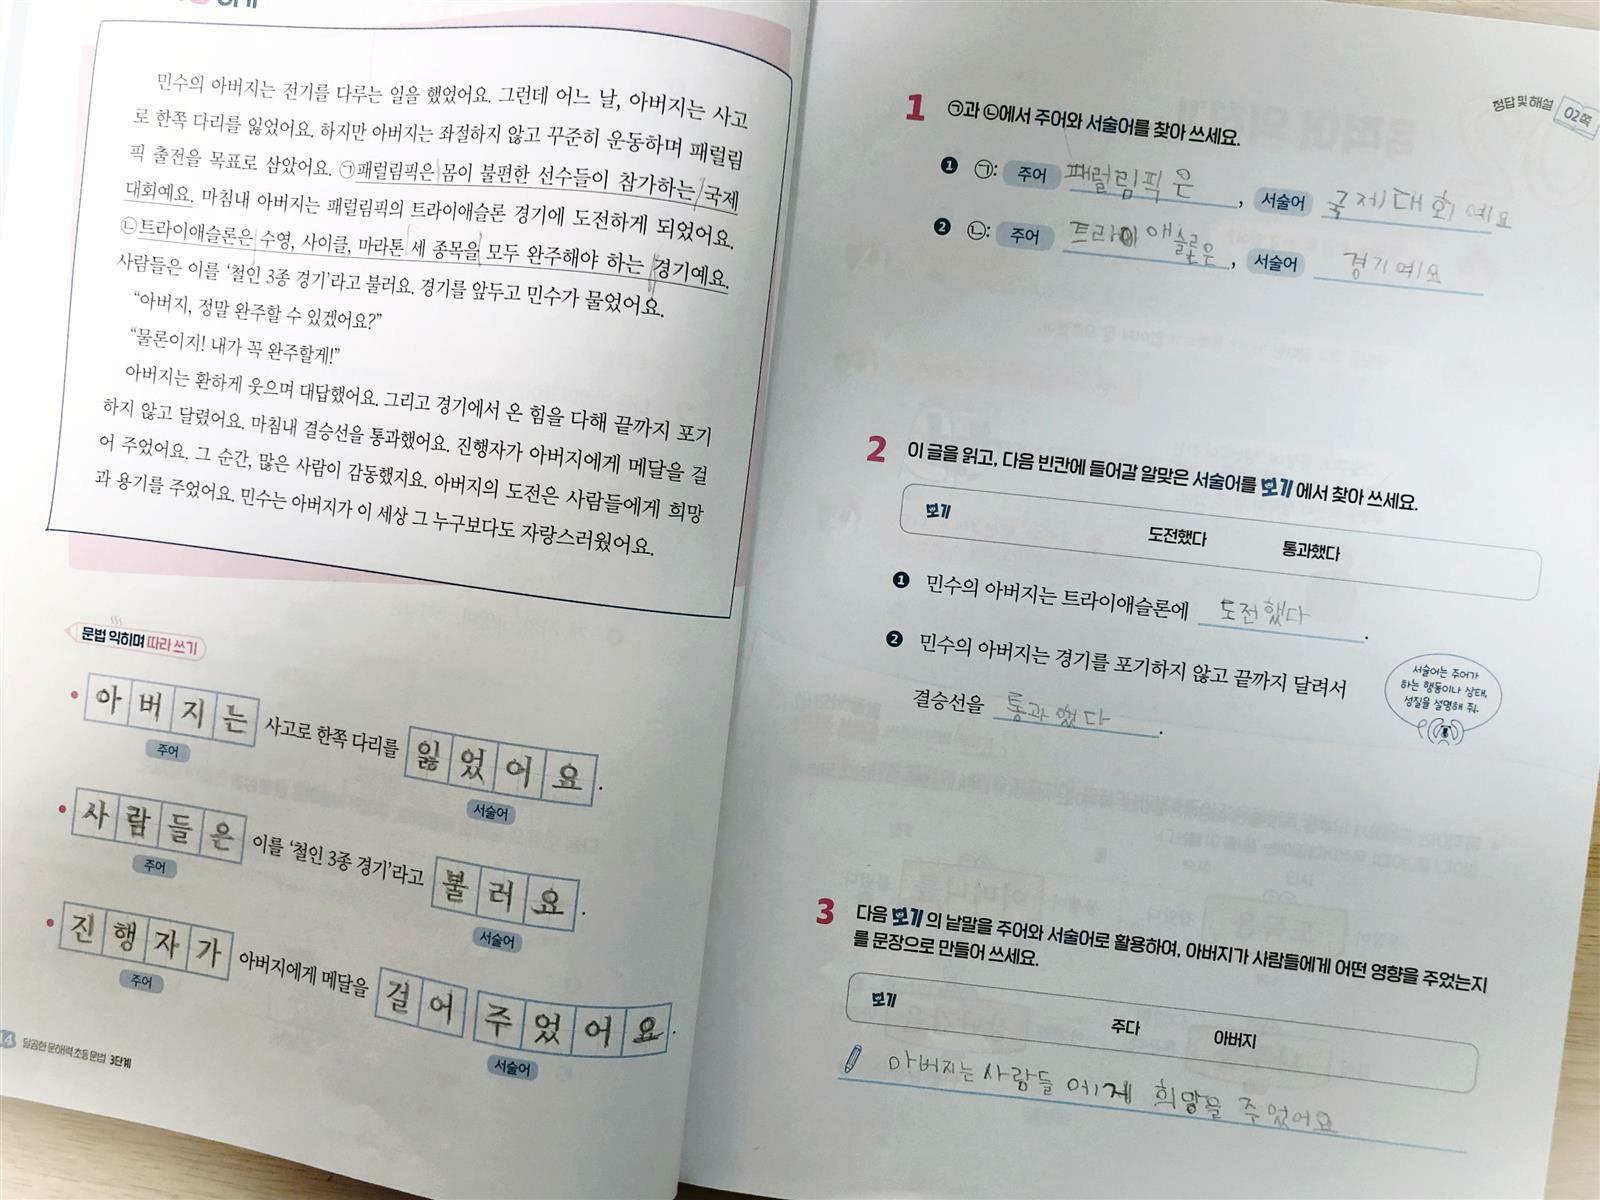 민수의 아버지는 전기를 다루는 일을 했었어요. 그런데 어느 날, 아버지는 사고
로 한쪽 다리를 잃었어요. 하지만 아버지는 좌절하지 않고 꾸준히 운동하며 패럴림
픽 출전을 목표로 삼았어요. ㉠패럴림픽은 몸이 불편한 선수들이 참가하는 국제
대회예요. 마침내 아버지는 패럴림픽의 트라이애슬론 경기에 도전하게 되었어요.
㉡트라이애슬론은 수영, 사이클, 마라톤 세 종목을 모두 완주해야 하는 경기예요.
사람들은 이를 ‘철인 3종 경기’라고 불러요. 경기를 앞두고 민수가 물었어요.
“아버지, 정말 완주할 수 있겠어요?”
“물론이지! 내가 꼭 완주할게!”
아버지는 환하게 웃으며 대답했어요. 그리고 경기에서 온 힘을 다해 끝까지 포기
하지 않고 달렸어요. 마침내 결승선을 통과했어요. 진행자가 아버지에게 메달을 걸
어 주었어요. 그 순간, 많은 사람이 감동했지요. 아버지의 도전은 사람들에게 희망
과 용기를 주었어요. 민수는 아버지가 이 세상 그 누구보다도 자랑스러웠어요.
문법 익히며 따라 쓰기
• 아버지는 사고로 한쪽 다리를 잃었어요.
주어 서술어
• 사람들은 이를 ‘철인 3종 경기’라고 불러요.
주어 서술어
• 진행자가 아버지에게 메달을 걸어 주었어요.
주어 서술어
14 달곰한 문해력 초등 문법 3단계
정답 및 해설 02쪽
1 ㉠과 ㉡에서 주어와 서술어를 찾아 쓰세요.
❶ ㉠: 주어 패럴림픽은, 서술어 국제대회예요
❷ ㉡: 주어 트라이애슬론은, 서술어 경기예요
2 이 글을 읽고, 다음 빈칸에 들어갈 알맞은 서술어를 보기에서 찾아 쓰세요.
보기
도전했다 통과했다
❶ 민수의 아버지는 트라이애슬론에 도전했다.
❷ 민수의 아버지는 경기를 포기하지 않고 끝까지 달려서
결승선을 통과했다.
서술어는 주어가
하는 행동이나 상태,
성질을 설명해 줘.
3 다음 보기의 낱말을 주어와 서술어로 활용하여, 아버지가 사람들에게 어떤 영향을 주었는지
를 문장으로 만들어 쓰세요.
보기
주다 아버지
아버지는 사람들에게 희망을 주었어요